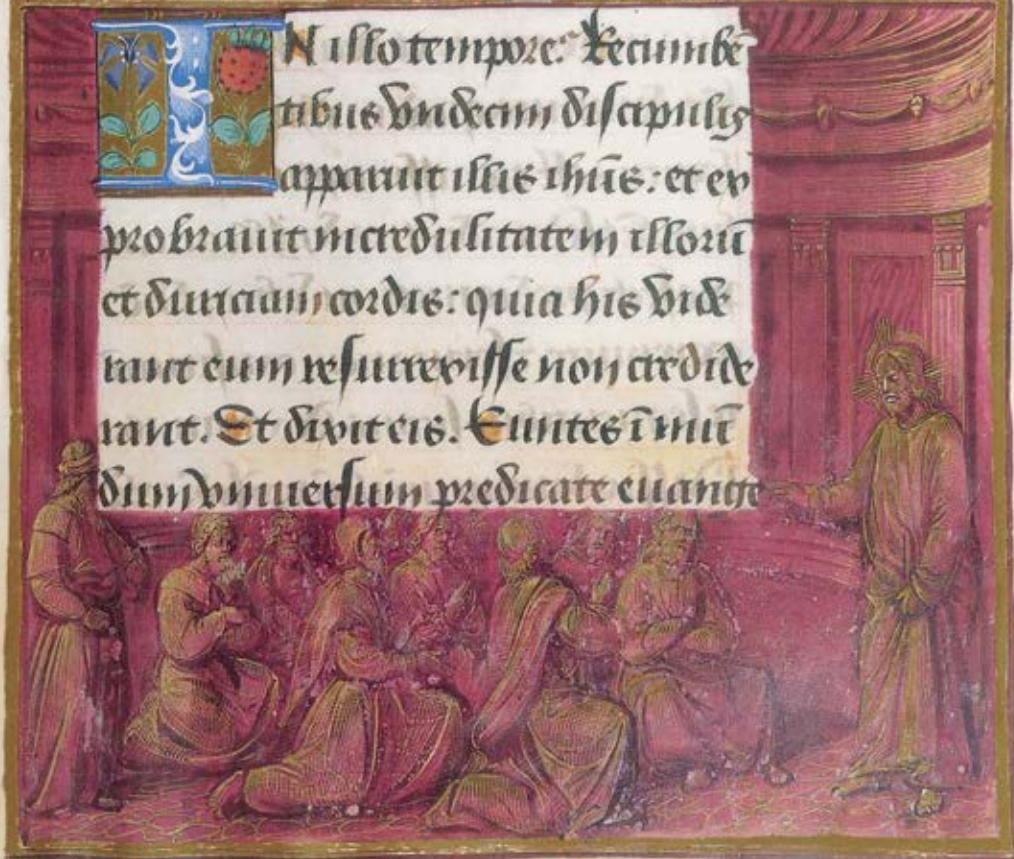 IN illo tempore. Recumbē
tibus vndecim discipulis
apparuit illis ihūs: et ex
probrauit incredulitatem illorū
et duriciam cordis: quia his vide
rant eum resurrexisse non credide
rant. Et dixit eis. Euntes ī mūn
dum vniuersum predicate euange